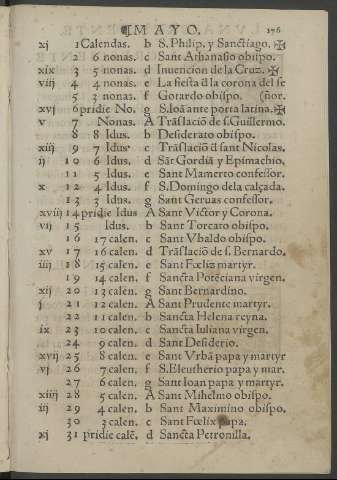 ¶MAYO. 176
xj 1 Calendas. b S. Philip. y Sanctiago. ✠
2 6 nonas. c Sant Athanasio obispo.
xix 3 5 nonas. d Inuencion de la Cruz. ✠
viij 4 4 nonas. e La fiesta d̃ la corona del se
5 3 nonas. f Gotardo obispo. (ñor.
xvj 6 pridie No. g S. Ioã ante porta latina. ✠
v 7 Nonas. A Trãslaciõ de s. Guillermo.
8 8 Idus. b Desiderato obispo.
xiij 9 7 Idus c Trãslaciõ d̃ sant Nicolas.
ij 10 6 Idus. d Sãt Gordiã y Epimachio.
11 5 Idus. e Sant Mamerto confessor.
x 12 4 Idus. f S. Domingo dela calçada.
13 3 Idus. g Sant Geruas confessor.
xviij 14 pridie Idus A Sant Victor y Corona.
vij 15 Idus. b Sant Torcato obispo.
16 17 calen. c Sant Vbaldo obispo.
xv 17 16 calen. d Trãslaciõ de s. Bernardo.
iiij 18 15 calen. e Sant Fœliz martyr.
19 14 calen. f Sancta Potẽciana virgen.
xij 20 13 calen. g Sant Bernardino.
j 21 12 calen. A Sant Prudente martyr.
22 11 calen. b Sancta Helena reyna.
ix 23 10 calen. c Sancta Iuliana virgen.
24 9 calen. d Sant Desiderio.
xvij 25 8 calen. e Sant Vrbã papa y martyr
vj 26 7 calen. f S. Eleutherio papa y mar.
27 6 calen. g Sant Ioan papa y martyr.
xiiij 28 5 calen. A Sant Mihelmo obispo.
iij 29 4 calen. b Sant Maximino obispo.
30 3 calen. c Sant Fœlix papa.
xj 31 pridie calẽ. d Sancta Petronilla.